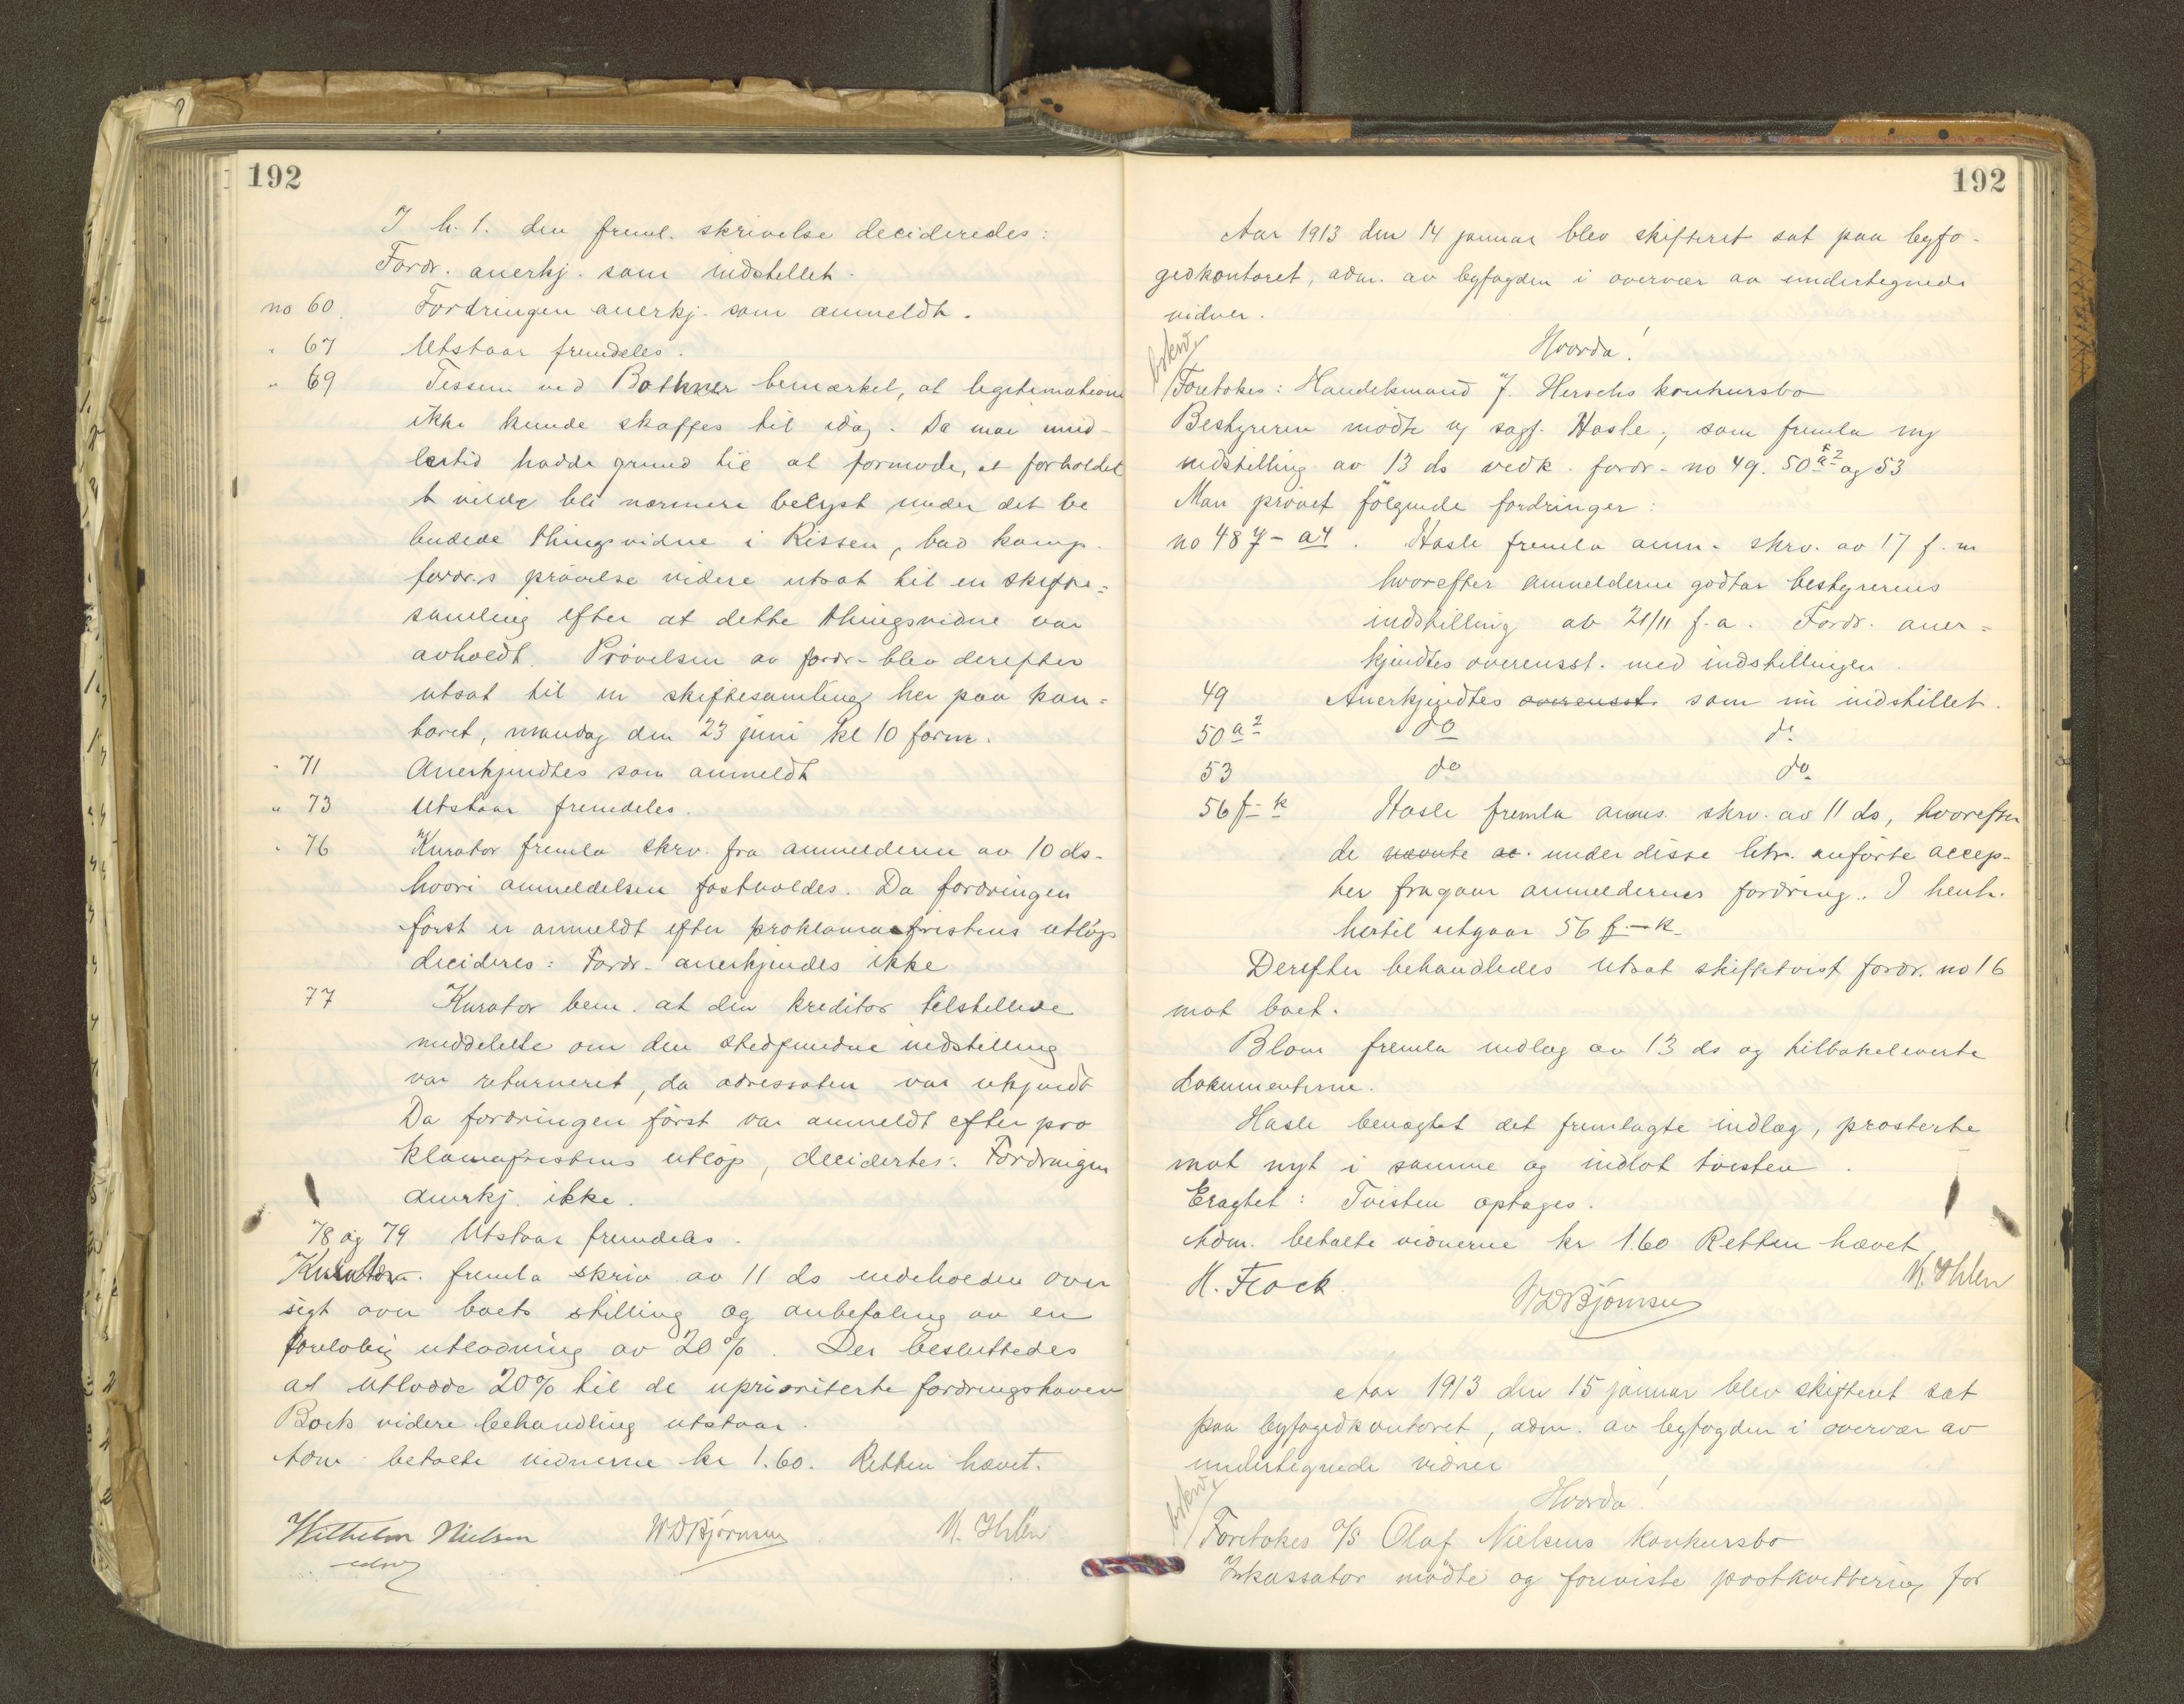 192
I h. t. den freml. skrivelse decideredes:
Fordr. anerkj. som indstillet.
no 60. Fordringen anerkj. som anmeldt.
" 67 Utstaar fremdeles.
" 69 Tessem ved Bothner bemærket, at legitimationen
ikke kunde skaffes til idag. Da man imid-
lertid hadde grund til at formode, at forholdet
vilde bli nærmere belyst under det be
budede thingsvidne i Rissen, bad komp.
fordr.s prøvelse videre utsat til en skifte=
samling efter at dette thingsvidne var
avholdt. Prøvelsen av fordr. blev derefter
utsat til en skiftesamling her paa kon=
toret, mandag den 23 juni kl 10 form.
" 71 Anerkjendtes som anmeldt
" 73 Utstaar fremdeles.
" 76 Kurator fremla skrv. fra anmelderen av 10 ds.
hvori anmeldelsen fastholdes. Da fordringen
først er anmeldt efter proklamafristens utløp
decideres: Fordr. anerkjendes ikke
77 Kurator bem. at den kreditor tilstillede
meddelelse om den stedfundne indstilling
var returneret, da adressaten var ukjendt
Da fordringen først var anmeldt efter pro
klamafristens utløp, decidertes: Fordringen
anerkj. ikke.
78 og 79 Utstaar fremdeles.
Kurator fremla skriv av 11 ds indeholden over
sigt over boets stilling og anbefaling av en
foreløbig utlodning av 20%. Der besluttedes
at utlodde 20% til de uprioriterte fordringshaver
Boets videre behandling utstaar.
Adm. betalte vidnerne kr 1.60. Retten hævet.
Wilhelm Nielsen W D Bjørnsen K. Ihlen
192
Aar 1913 den 14 januar blev skifteret sat paa byfo-
gedkontoret, adm. av byfogden i overvær av undertegnede
vidner.
Hvorda!
Foretokes: Handelsmand J. Herschs konkursbo
Bestyreren mødte v/ sagf. Hasle, som fremla ny
indstilling av 13 ds vedk. fordr. no 49. 50 a2 og 53
Man prøvet følgende fordringer:
no 48 7 - a4. Hasle fremla anm. skrv. av 17 f.m
hvorefter anmelderne godtar bestyrerens
indstilling av 21/11 f.a. Fordr. aner=
kjendtes overensst. med indstillingen.
49 Anerkjendtes overensst. som nu indstillet.
50 a2 do do
53 do do
56 f - k Hasle fremla anm. skrv. av 11 ds, hvorefter
de nævnte ac. under disse litr. anførte accep-
ter fragaar anmeldernes fordring. I henh.
hertil utgaar 56 f - k
Derefter behandledes utsat skiftetvist fordr. no 16
mot boet.
Blom fremla indlæg av 13 ds og tilbakeleverte
dokumenterne.
Hasle benægtet det fremlagte indlæg, prosterte
mot nyt i samme og indlot tvisten.
Eragtet: Tvisten optages.
Adm. betalte vidnerne kr 1.60 Retten hævet
H. Flock W D Bjørnsen K. Ihlen
Aar 1913 den 15 januar blev skifteret sat
paa byfogedkontoret, adm. av byfogden i overvær av
undertegnede vidner
Hvorda!
Foretokes A/S Olaf Nielsens konkursbo
Inkassator mødte og foreviste postkvittering for